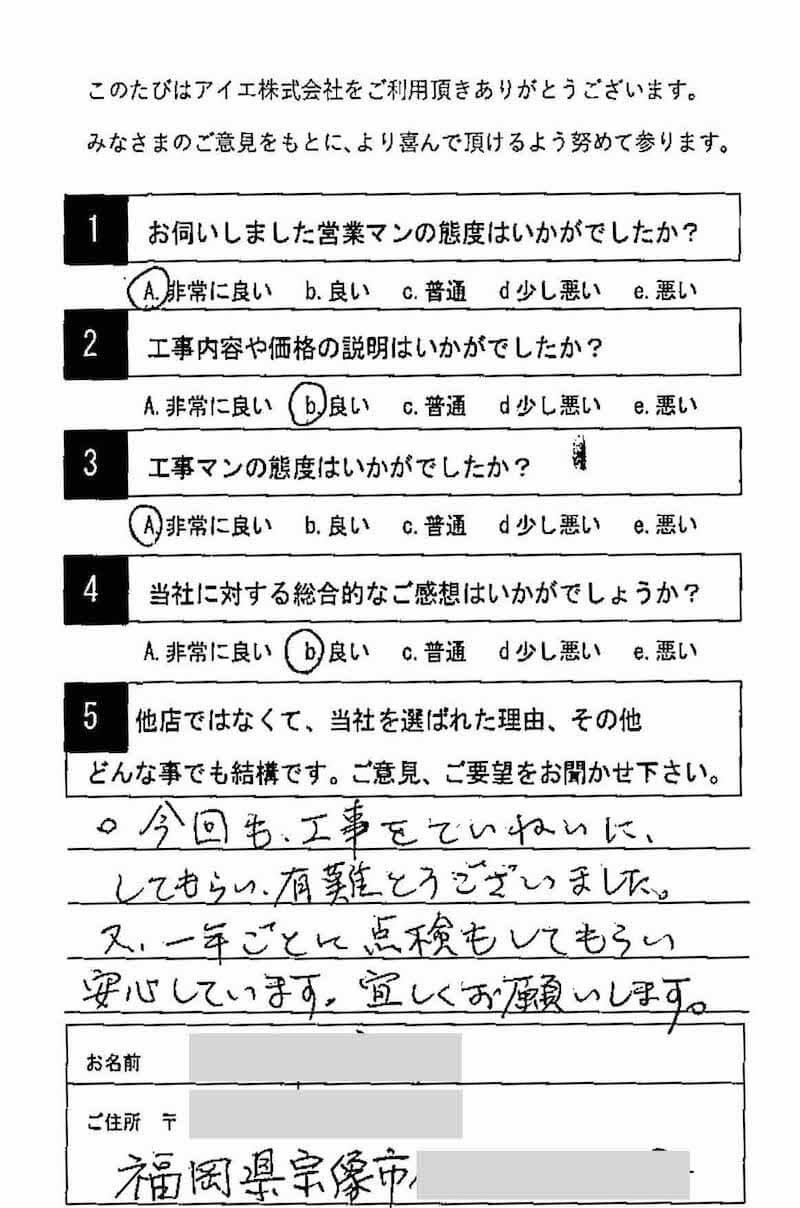 このたびはアイエ株式会社をご利用頂きありがとうございます。
みなさまのご意見をもとに、より喜んで頂けるよう努めて参ります。
1 お伺いしました営業マンの態度はいかがでしたか？
A. 非常に良い b. 良い c. 普通 d 少し悪い e. 悪い
2 工事内容や価格の説明はいかがでしたか？
A. 非常に良い b. 良い c. 普通 d 少し悪い e. 悪い
3 工事マンの態度はいかがでしたか？
A. 非常に良い b. 良い c. 普通 d 少し悪い e. 悪い
4 当社に対する総合的なご感想はいかがでしょうか？
A. 非常に良い b. 良い c. 普通 d 少し悪い e. 悪い
5 他店ではなくて、当社を選ばれた理由、その他
どんな事でも結構です。ご意見、ご要望をお聞かせ下さい。
○今回も、工事をていねいに、
してもらい、有難とうございました。
又、一年ごとに点検もしてもらい
安心しています。宜しくお願いします。
お名前
ご住所 〒
福岡県宗像市